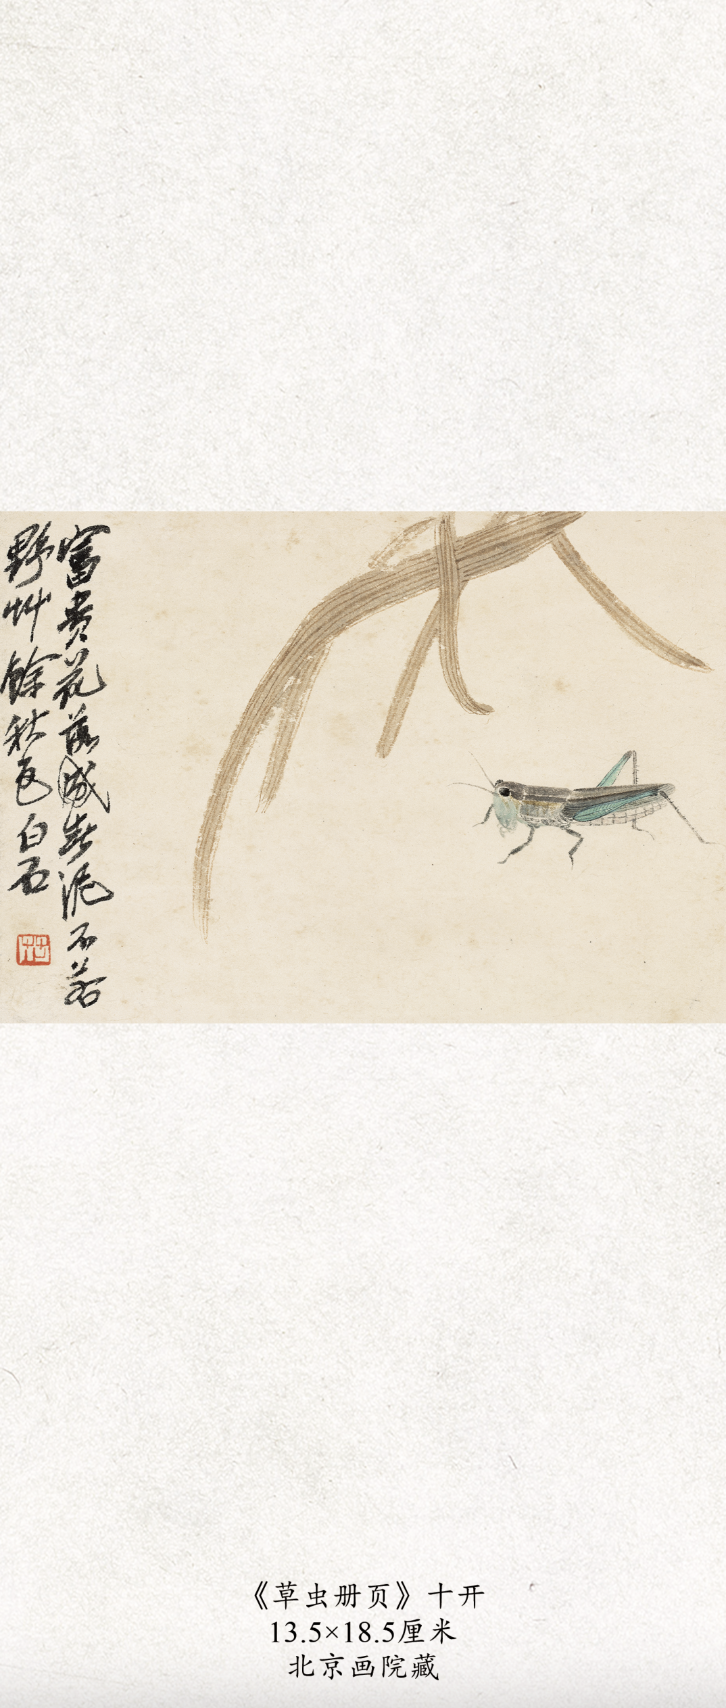 富贵花落成春泥不若
野艸餘秋色白石
《草虫册页》十开
13.5×18.5厘米
北京画院藏